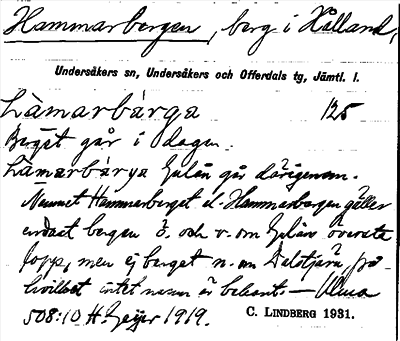 Hammarbergen, berg i Hålland,
Undersåkers sn, Undersåkers och Offerdals tg, Jämtl. l.
Làmarbárga 125
Berget går i dagen.
Làmarbárga Gulån går därigenom.
Namnet Hammarberget el. Hammarbergen gäller
endast bergen ö. och v. om Gulåns översta
lopp, men ej berget n. om Dalstjärn, för
hvilket intet namn är bekant —
508:10 H. Geijer 1919. C. LINDBERG 1931.